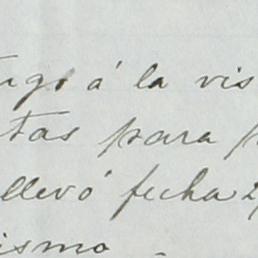 tugo á la vis
tas para p
llevó fecha 2
ismo -